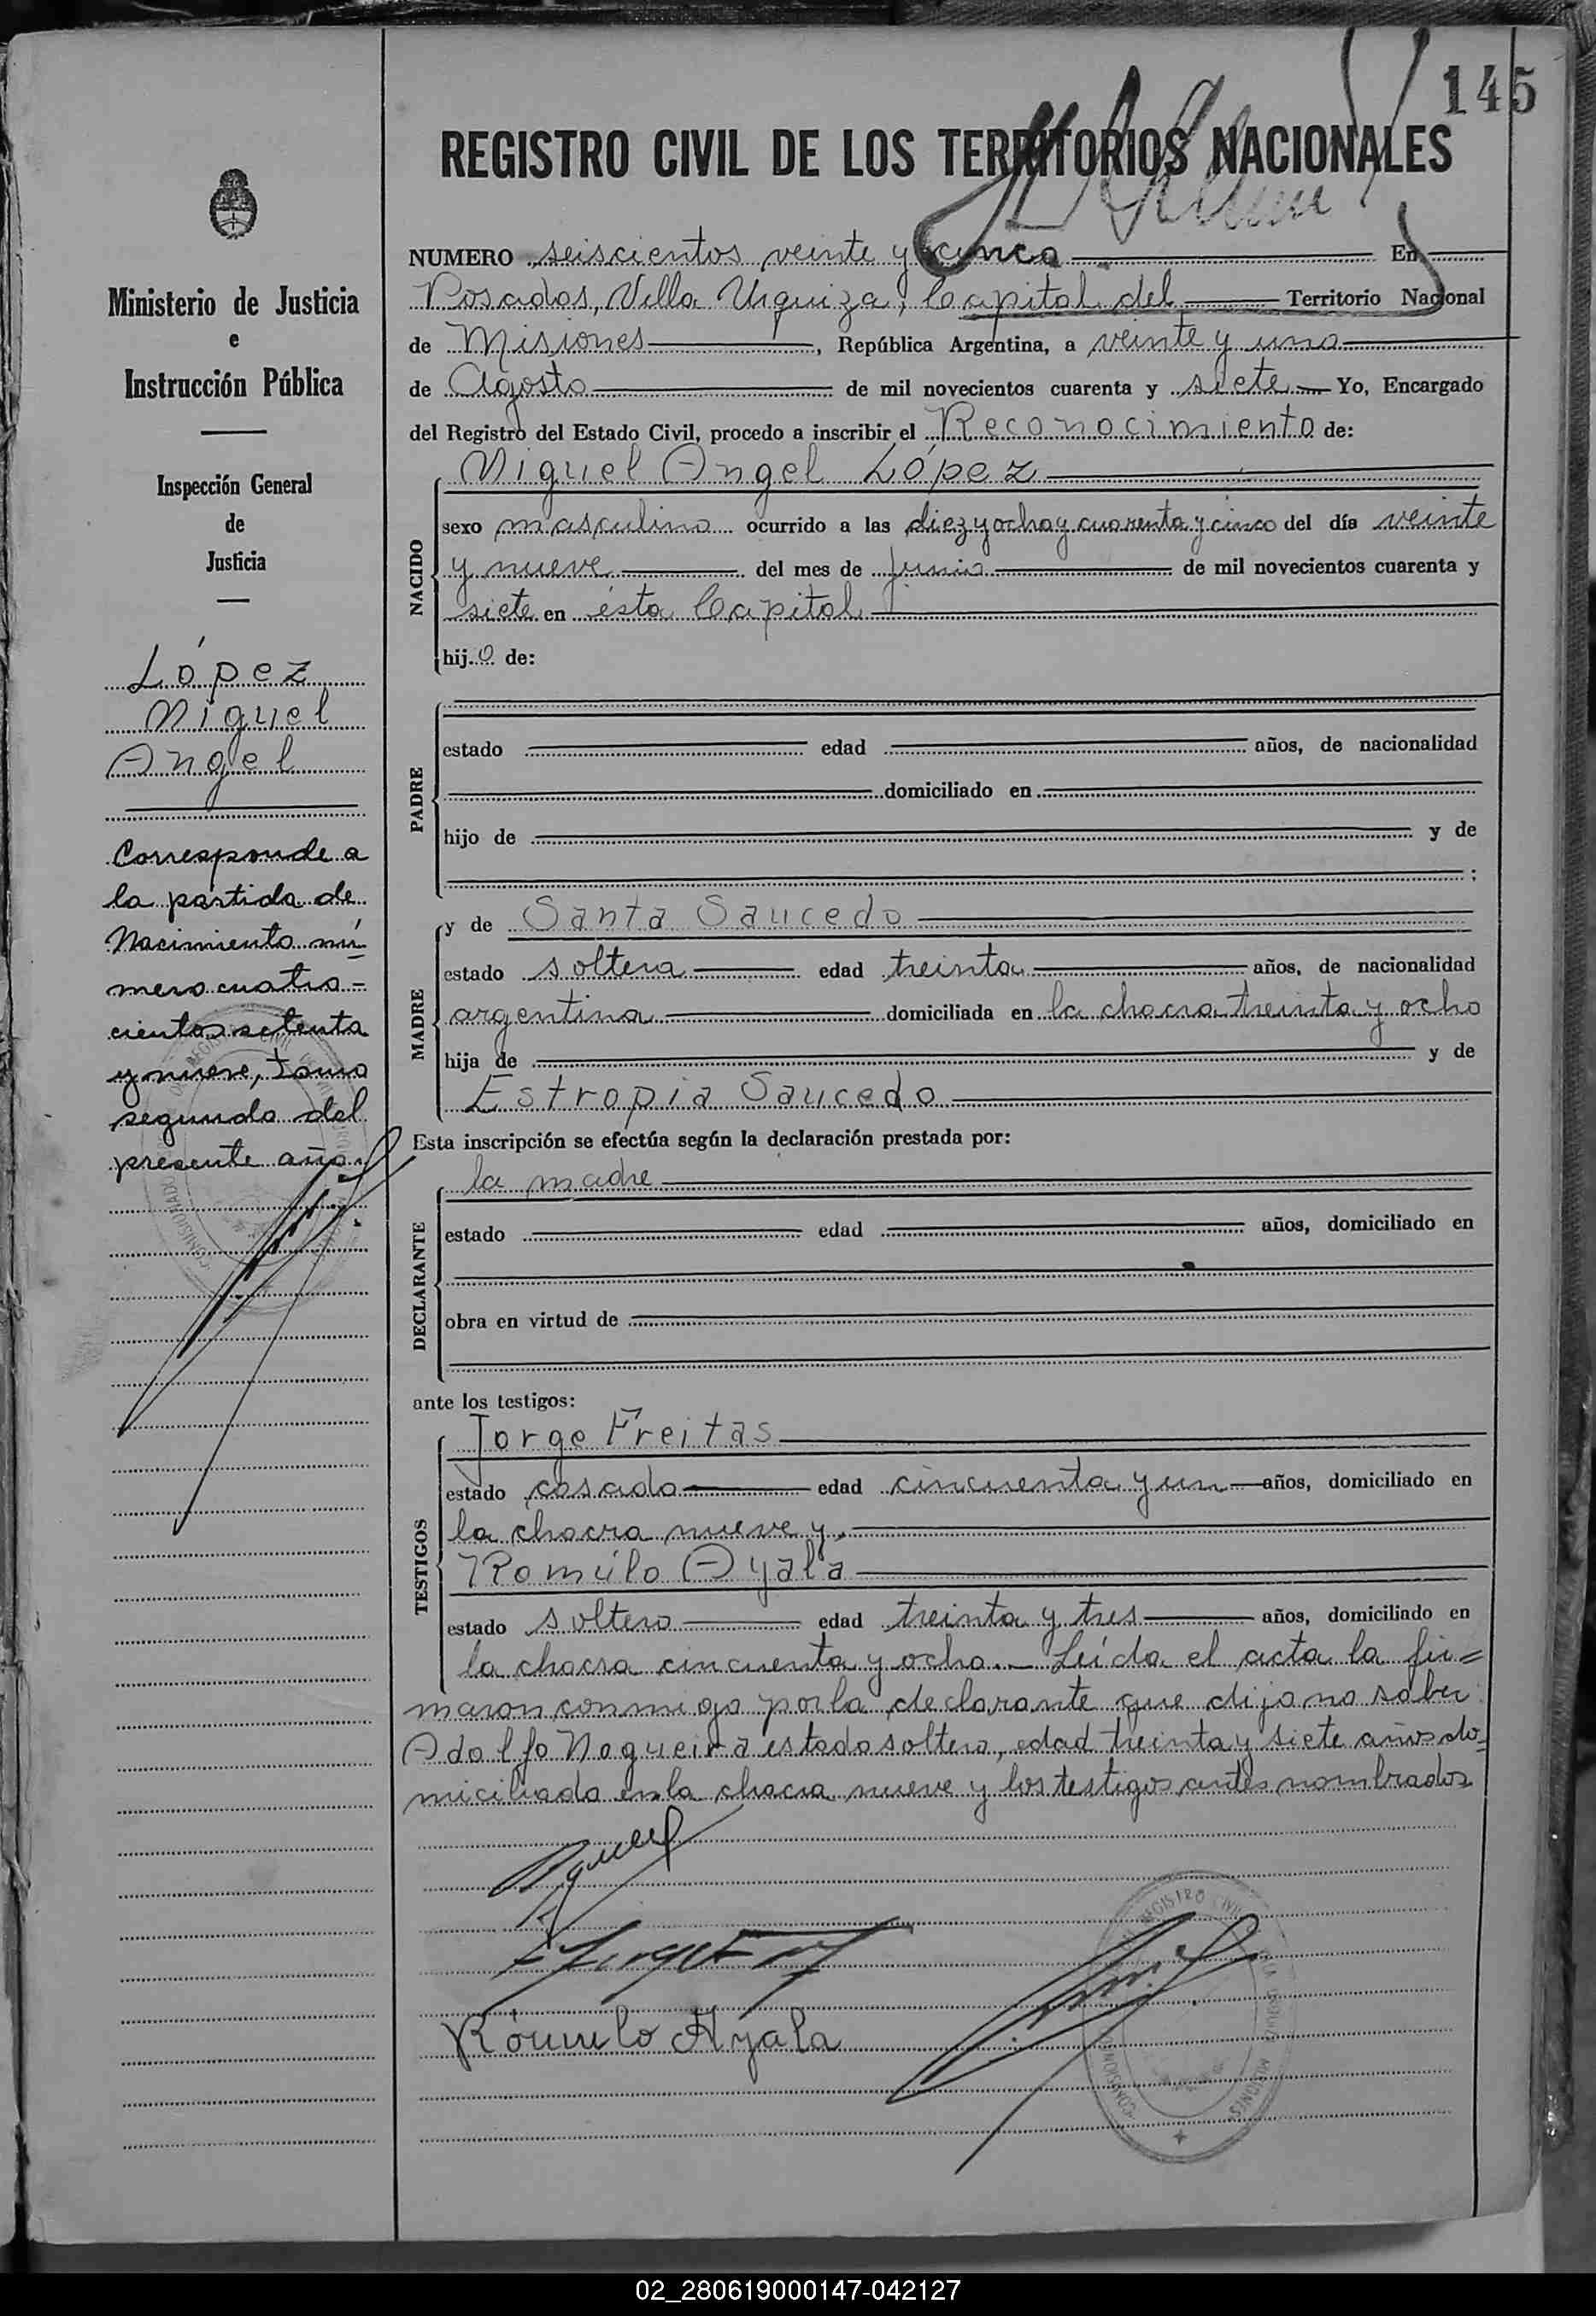 145
REGISTRO CIVIL DE LOS TERRITORIOS NACIONALES
NUMERO seiscientos veinte y cinco En
Posadas, Villa Urquiza, Capital del Territorio Nacional
de Misiones, República Argentina, a veinte y uno
de Agosto de mil novecientos cuarenta y siete Yo, Encargado
del Registro del Estado Civil, procedo a inscribir el Reconocimiento de:
NACIDO
Miguel Angel López
sexo masculino ocurrido a las diez y ocho y cuarenta y cinco del día veinte
y nueve del mes de junio de mil novecientos cuarenta y
siete en ésta Capital
hijo de:
PADRE
estado edad años, de nacionalidad
domiciliado en
hijo de y de
;
MADRE
y de Santa Saucedo
estado soltera edad treinta años, de nacionalidad
argentina domiciliada en la chacra treinta y ocho
hija de y de
Estropia Saucedo
Esta inscripción se efectúa según la declaración prestada por:
DECLARANTE
la madre
estado edad años, domiciliado en
obra en virtud de
ante los testigos:
TESTIGOS
Jorge Freitas
estado casado edad cincuenta y un años, domiciliado en
la chacra nueve y.
Romúlo Ayala
estado soltero edad treinta y tres años, domiciliado en
la chacra cincuenta y ocho.— Leída el acta la fir=
maron conmigo por la declarante que dijo no saber
Adolfo Nogueira estado soltero, edad treinta y siete años do=
miciliado en la chacra nueve y los testigos antes nombrados
Rómulo Ayala
REGISTRO CIVIL
MISIONES
Ministerio de Justicia
e
Instrucción Pública
Inspección General
de
Justicia
López
Miguel
Angel
Corresponde a
la partida de
Nacimiento nú=
mero cuatro-
cientos setenta
y nueve, tomo
segundo del
presente año.
02_280619000147-042127